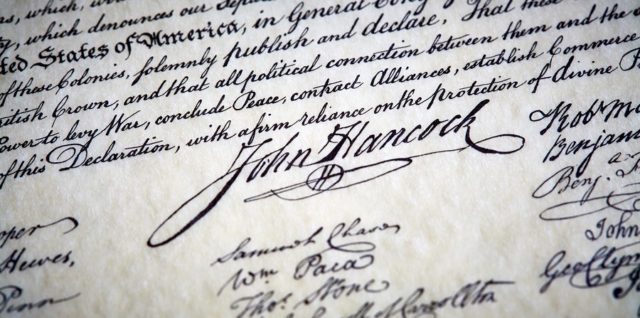 which, wou
which denounces our Sepa
ted States of America, in General Cong
of these Colonies, solemnly publish and declare, That these
itish Crown, and that all political connection between them and the
ower to levy War, conclude Peace, contract Alliances, establish Commerce
of this Declaration, with a firm reliance on the protection of divine P
John Hancock
Robt M
Benjam
Benj. 
John
Geo Clym
oper
Hewes,
Penn
Samuel Chase
Wm Paca
Thos Stone
Carrollton